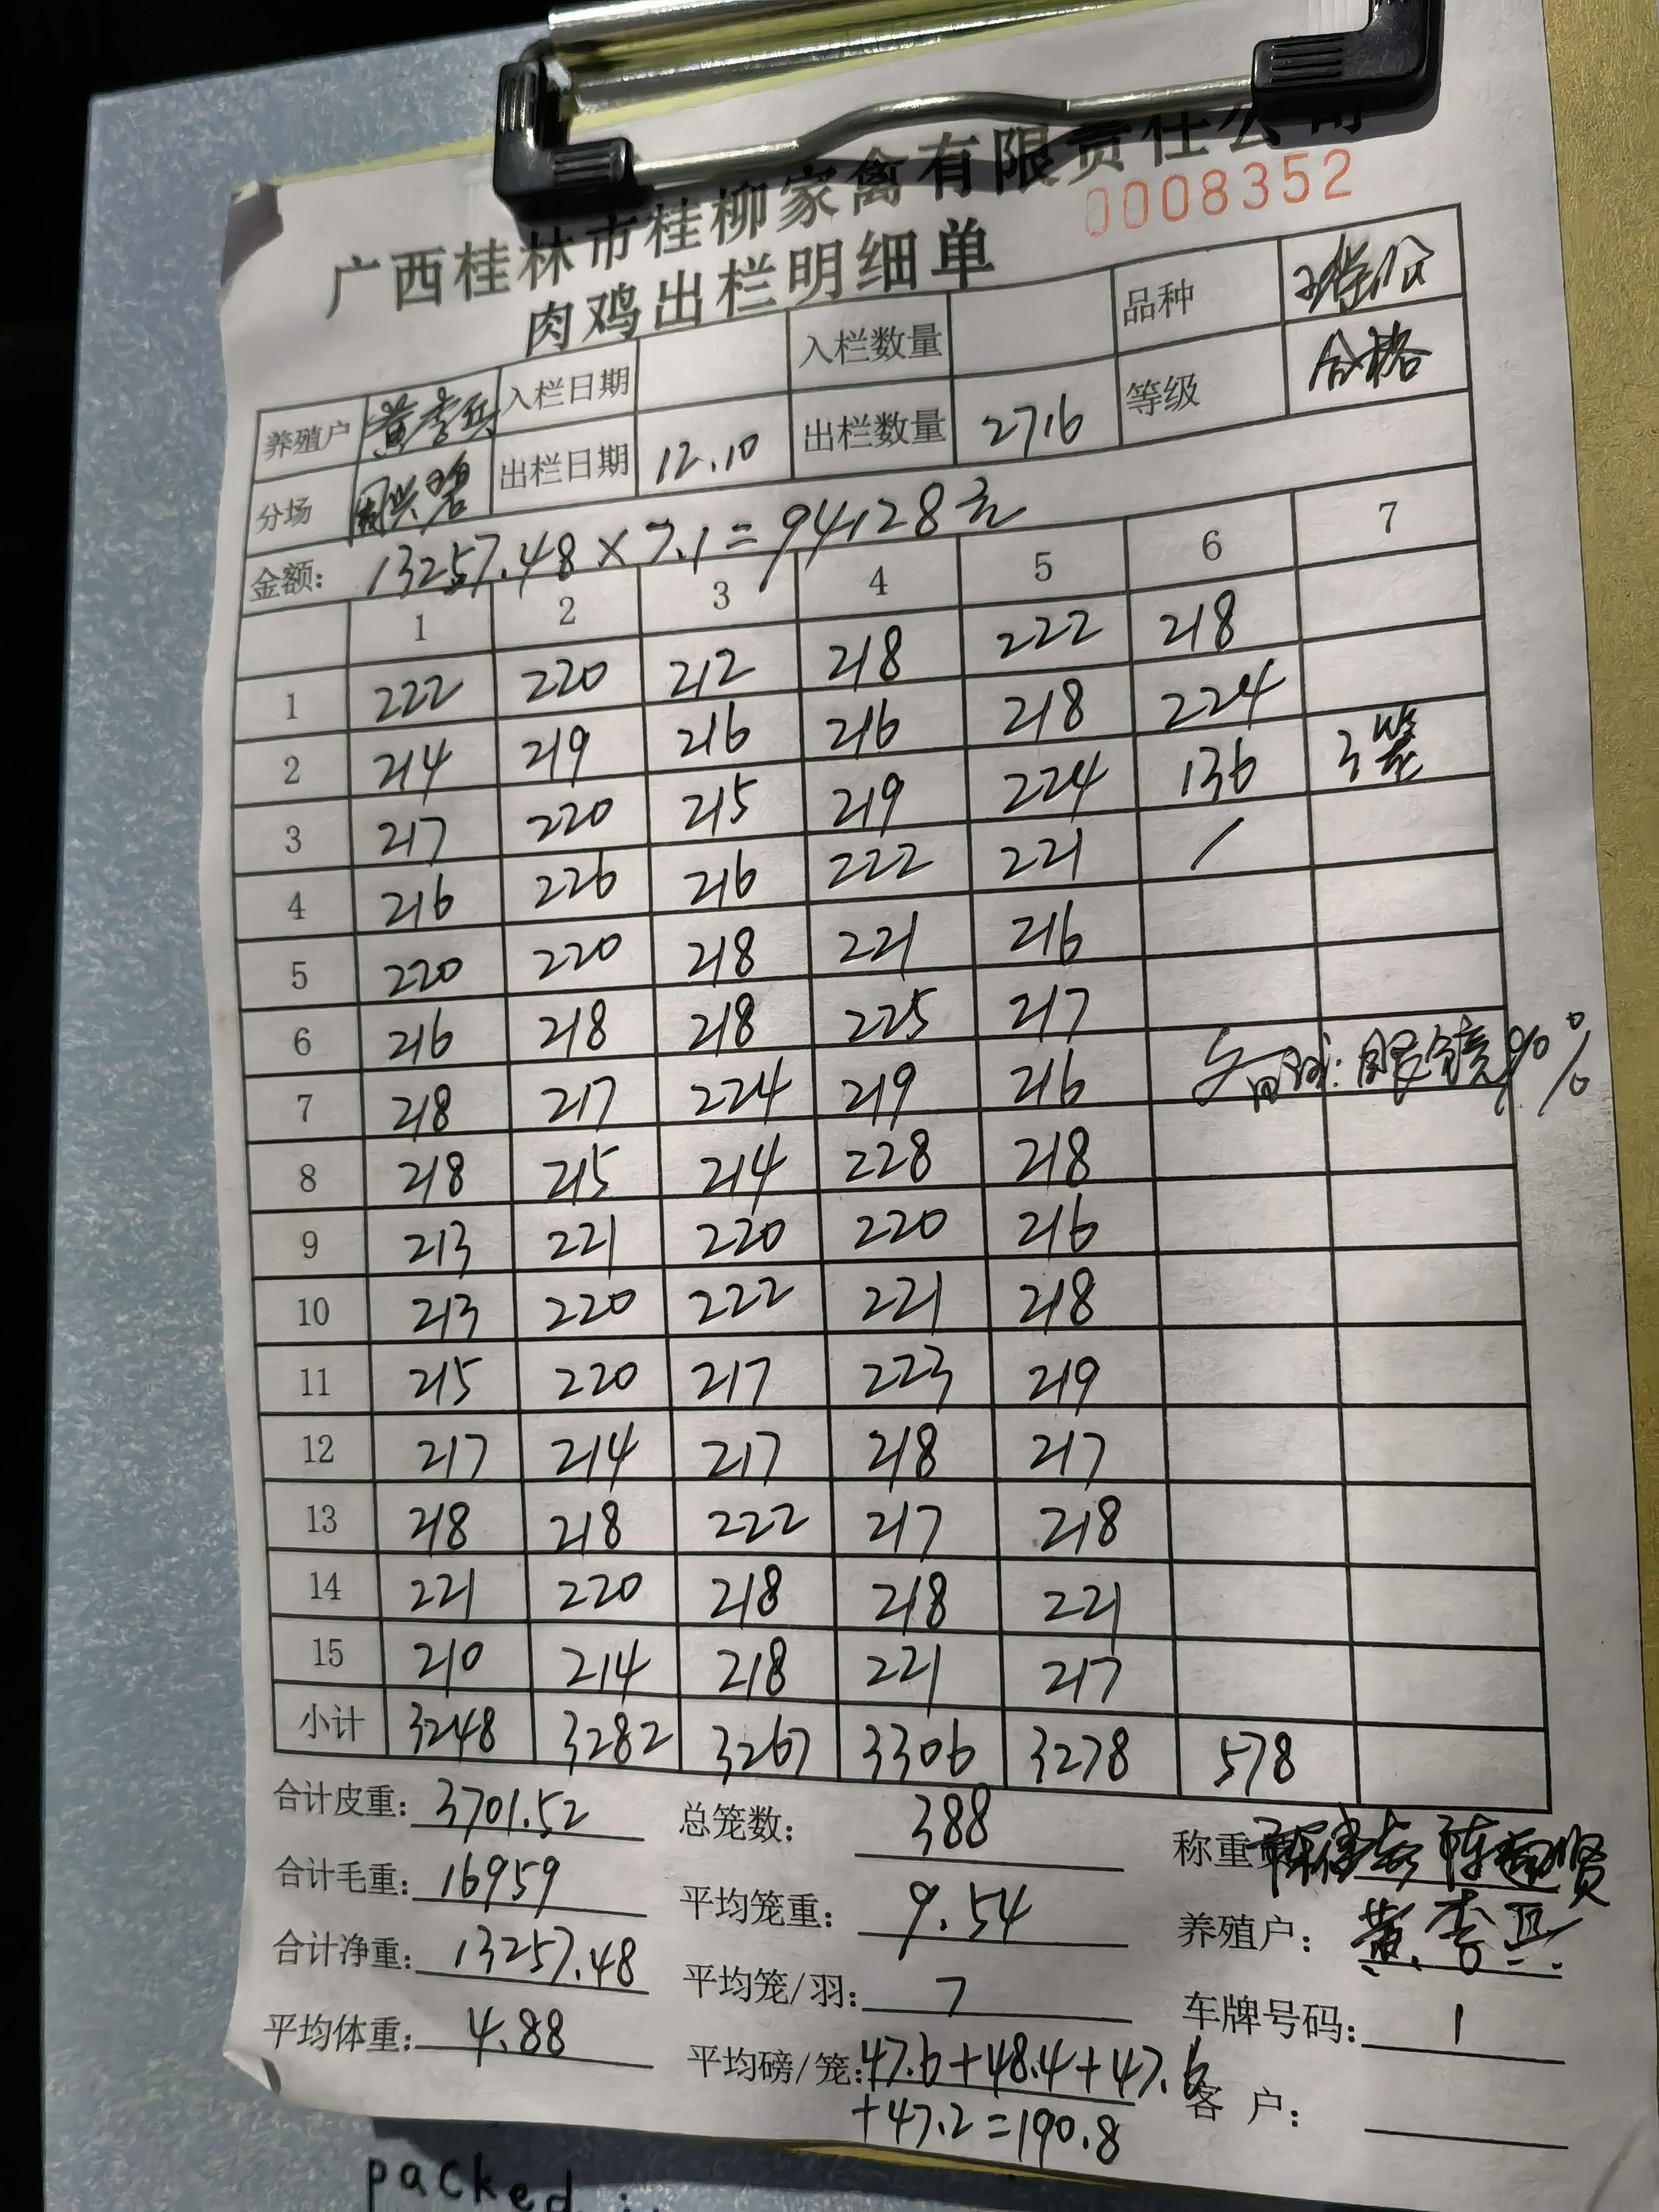 广西桂林市桂柳家禽有限责任公司
0008352
肉鸡出栏明细单
养殖户 黄李兵 入栏日期 入栏数量 品种
分场 出栏日期 12.10 出栏数量 2716 等级 合格
金额: 13257.48 × 7.1 = 94128元
1 2 3 4 5 6 7
1 222 220 212 218 222 218
2 214 219 216 216 218 224
3 217 220 215 219 224 136 3笼
4 216 226 216 222 221 /
5 220 220 218 221 216
6 216 218 218 225 217
7 218 217 224 219 216 备: 眼镜90%
8 218 215 214 228 218
9 213 221 220 220 216
10 213 220 222 221 218
11 215 220 217 223 219
12 217 214 217 218 217
13 218 218 222 217 218
14 221 220 218 218 221
15 210 214 218 221 217
小计 3248 3282 3267 3306 3278 578
合计皮重: 3701.52 总笼数: 388 称重
合计毛重: 16959 平均笼重: 9.54 养殖户: 黄李兵
合计净重: 13257.48 平均笼/羽: 7 车牌号码: 1
平均体重: 4.88 平均磅/笼: 47.6+48.4+47.6 客 户:
+47.2=190.8
packed